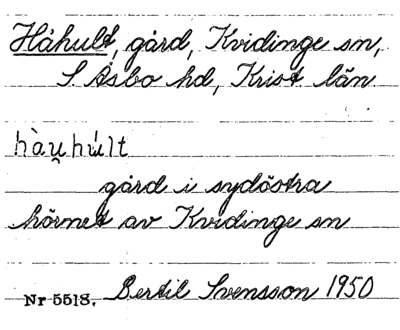 Håhult, gård, Kvidinge sn,
S. Åsbo hd, Krist. län
hàu̯húlt
gård i sydöstra
hörnet av Kvidinge sn
Nr 5518. Bertil Svensson 1950